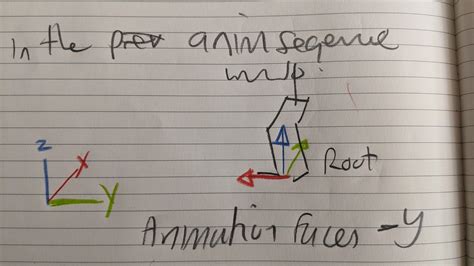 In the prev anim seqence
Z X
Y
Root
Animation Faces -y